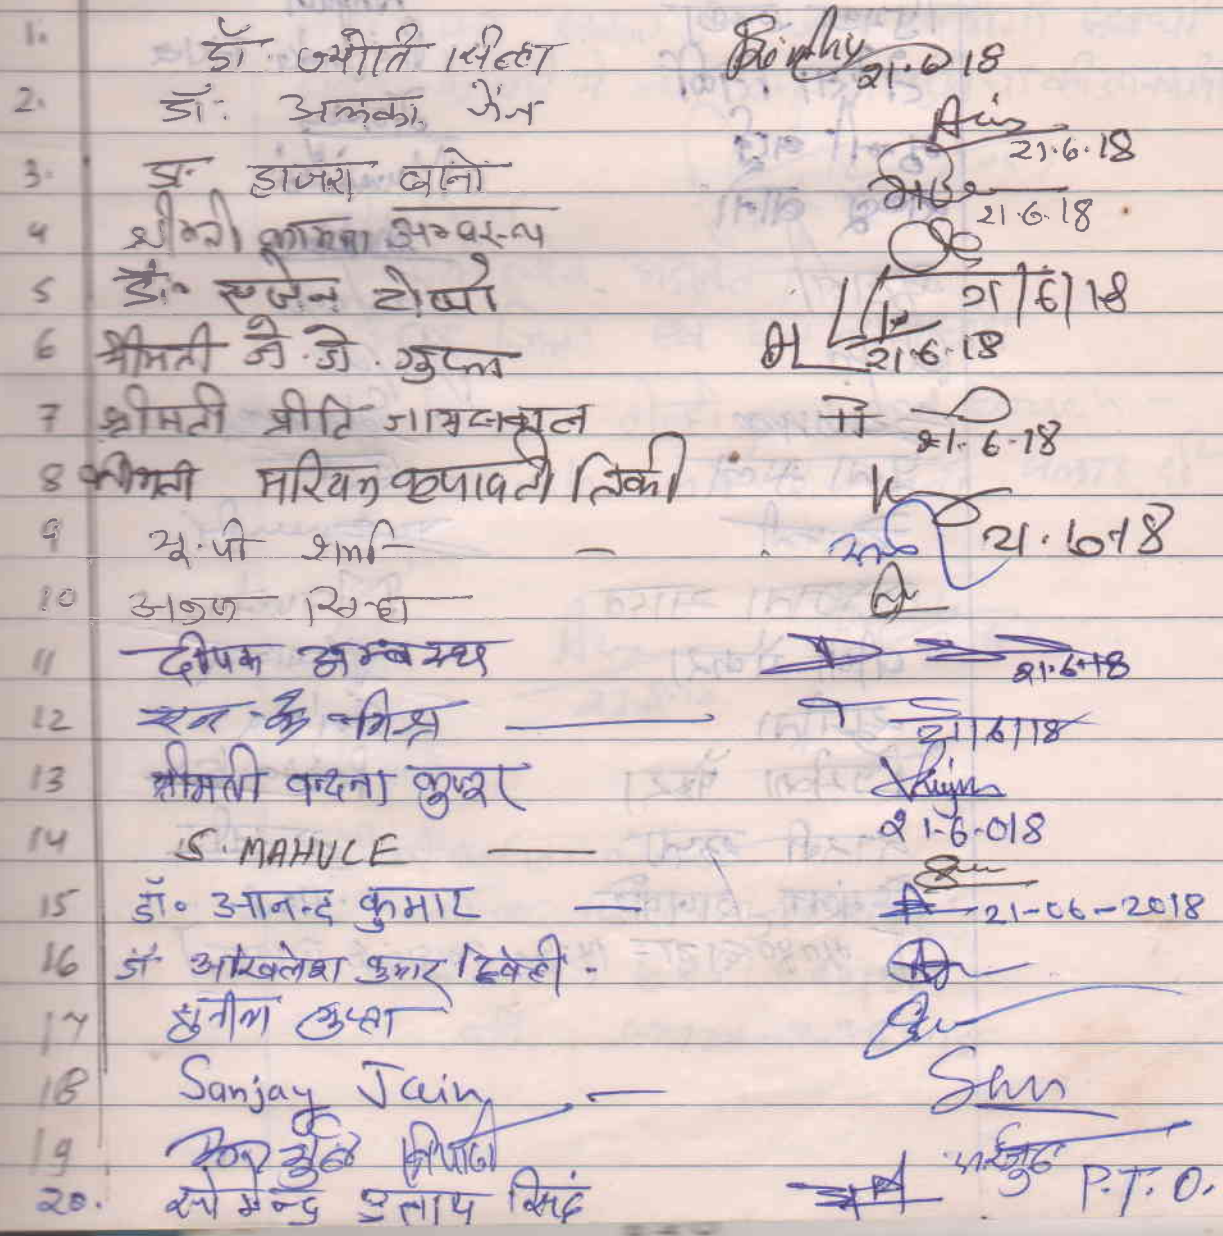 1. डॉ. ज्योति सिन्हा 21.6.18
2. डॉ. अलका जैन 21.6.18
3. डॉ. हाजरा बानो 21.6.18
4 श्रीमती कामना अम्बस्थ
5 डॉ. एजेन टोप्पो 21/6/18
6 श्रीमती जे. जे. गुप्ता 21-6-18
7 श्रीमती प्रीति जायसवाल 21-6-18
8 श्रीमती मरियम कृपावती तिर्की
9 यू.पी शर्मा - 21.6.18
10 सिन्हा
11 दीपक अम्बस्थ 21.6.18
12 एन. के. मिश्रा — 21/6/18
13 श्रीमती वन्दना कुजूर 21-6-018
14 S. MAHULE —
15 डॉ. आनन्द कुमार — 21-06-2018
16 डॉ अखिलेश कुमार द्विवेदी -
17 सुनीता गुप्ता
18 Sanjay Jain —
19 त्रिपाठी
20. सोमेन्द्र प्रताप सिंह P.T.O.